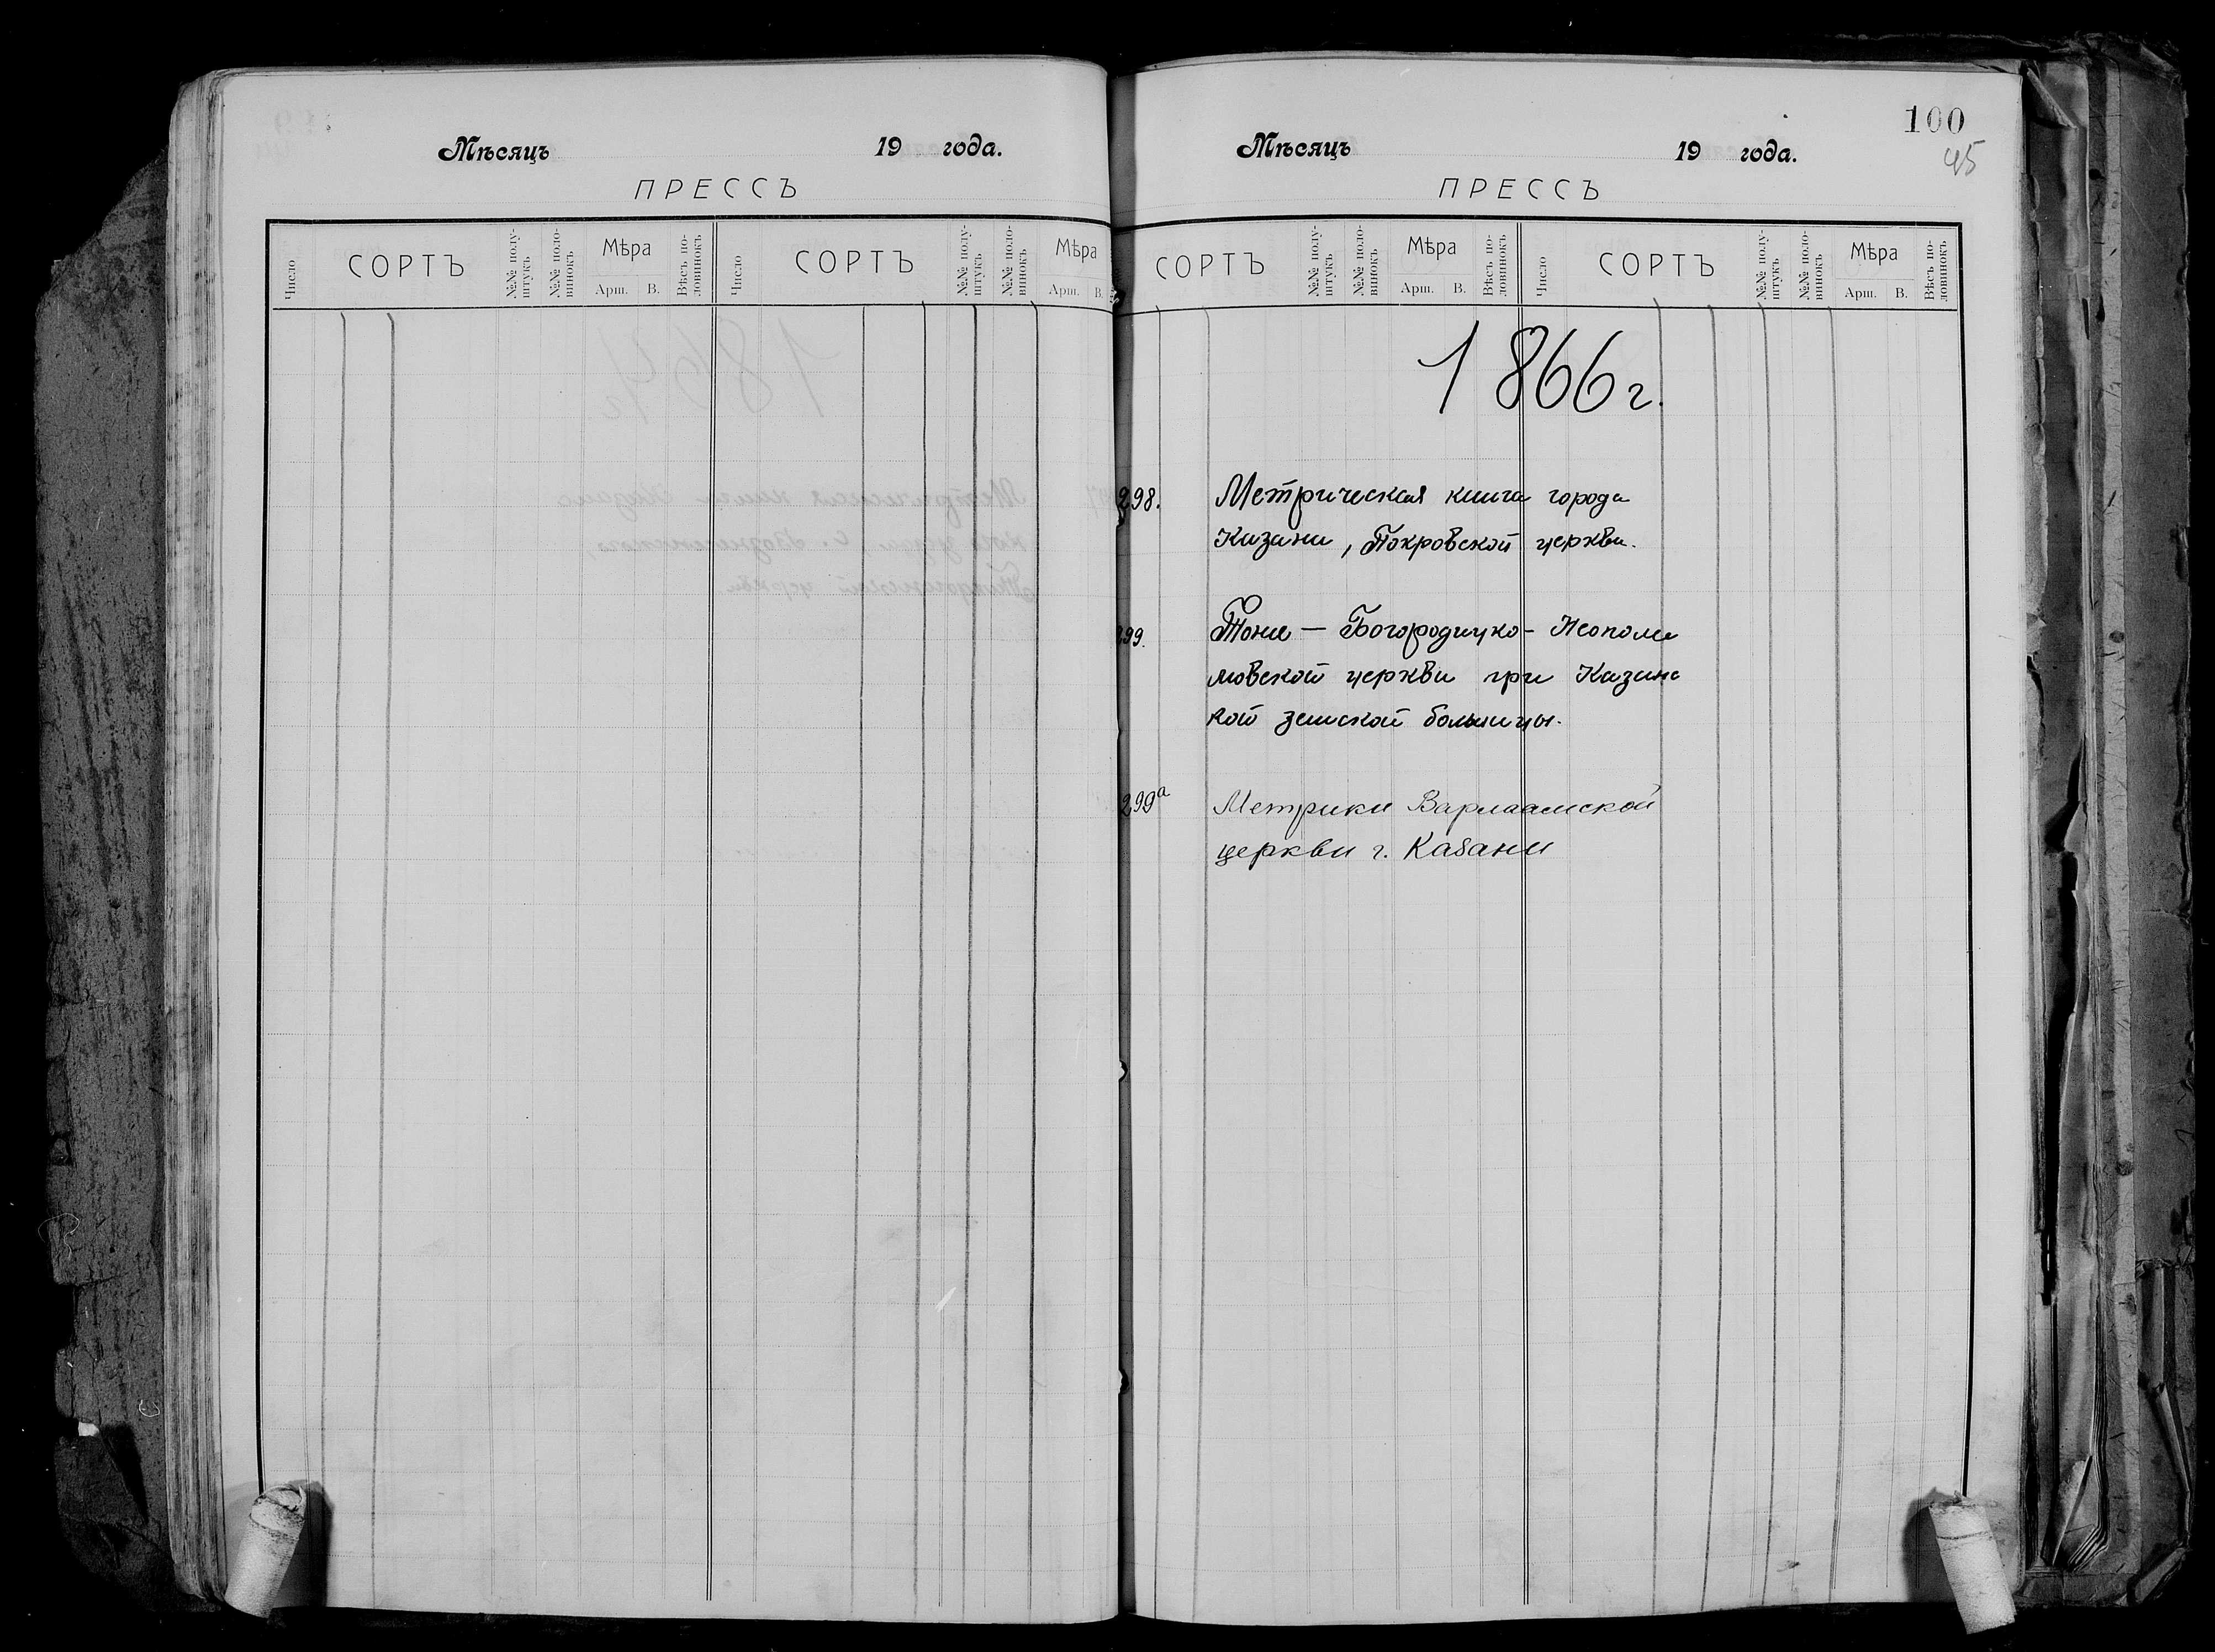 Мѣсяцъ 19 года.
ПРЕССЪ
Число СОРТЪ №№ полуштукъ №№ половинокъ Мѣра Арш. В. Вѣсъ половинокъ Число СОРТЪ №№ полуштукъ №№ половинокъ Мѣра Арш. В.
100
45
Мѣсяцъ 19 года.
ПРЕССЪ
СОРТЪ №№ полуштукъ №№ половинокъ Мѣра Арш. В. Вѣсъ половинокъ Число СОРТЪ №№ полуштукъ №№ половинокъ Мѣра Арш. В. Вѣсъ половинокъ
1866 г.
298. Метрическая книга города
Казани, Покровской церкви.
299. Тоже — Богородицко-Неопали
мовской церкви при Казанс
кой земской больницы.
299а Метрики Варлаамской
церкви г. Казани